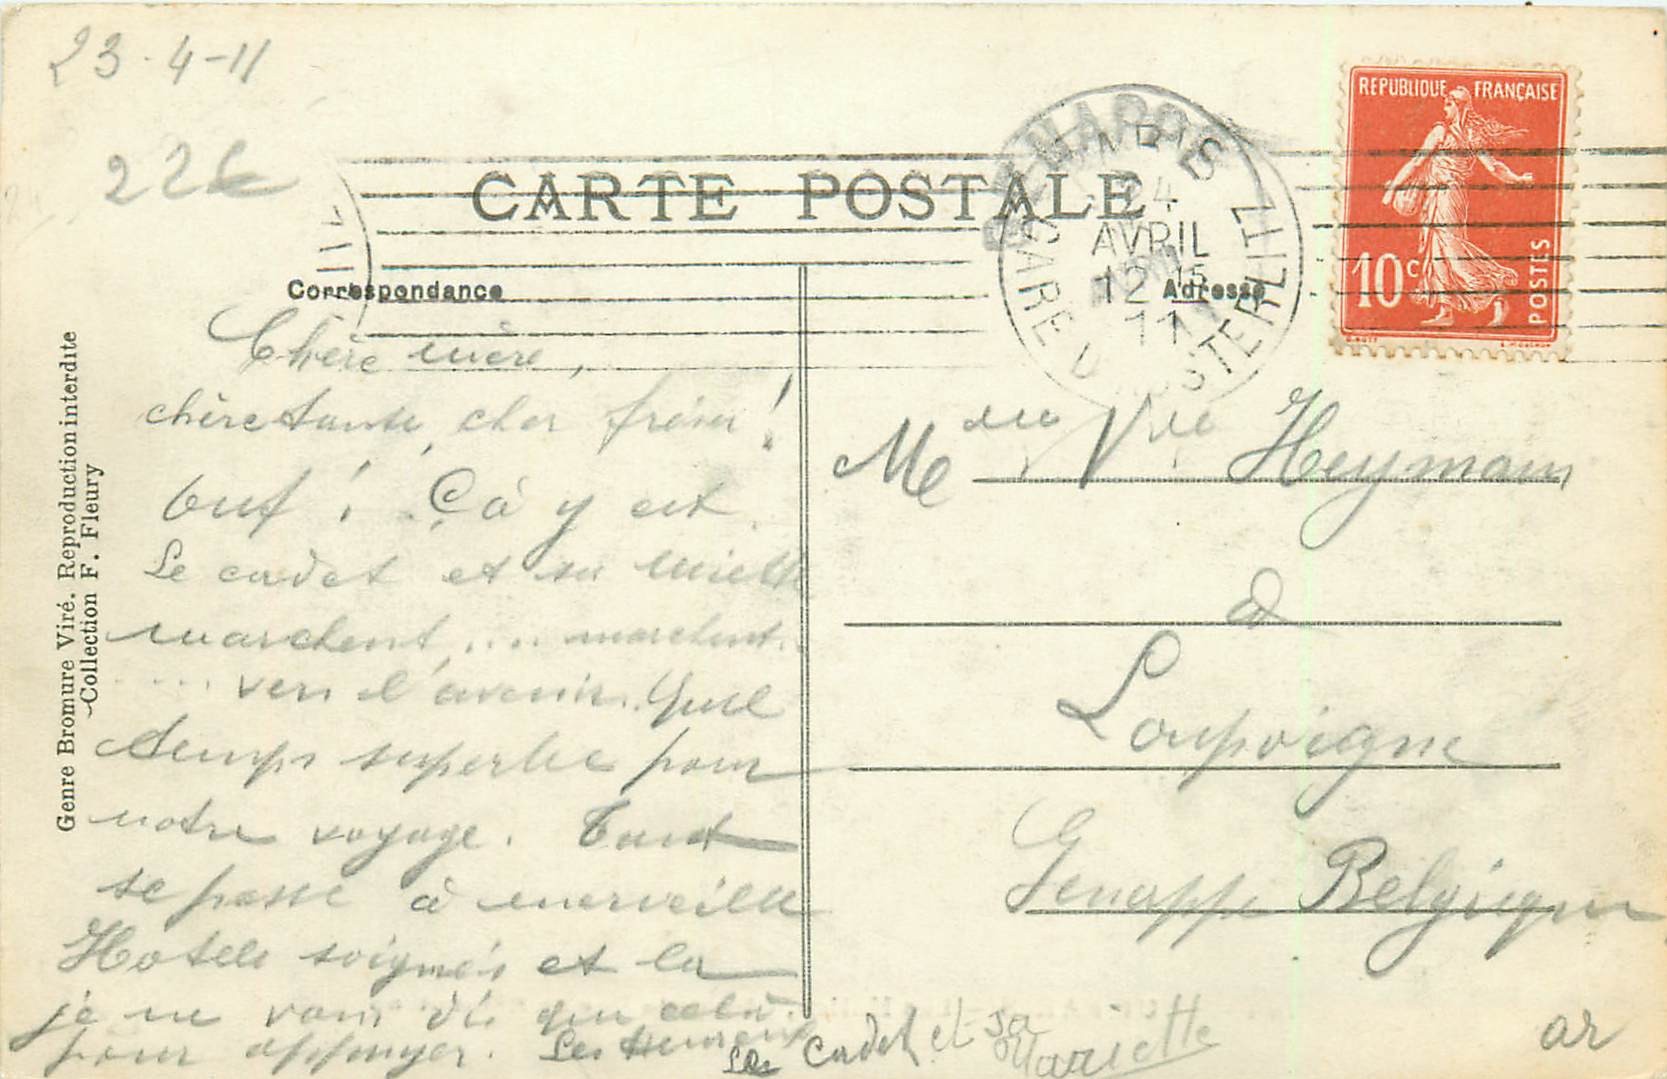 23-4-11
226
CARTE POSTALE
REPUBLIQUE FRANÇAISE
10c
POSTES
PARIS
24
AVRIL
12 15
11
GARE D'AUSTERLITZ
GENAPPE
Correspondance
Adresse
Genre Bromure Viré. Reproduction interdite
Collection F. Fleury
Chère mère,
chère tante, cher frère!
Ouf! Ça y est.
Le cadet et sa miette
marchent.... marchent..
.... vers l'avenir. Quel
temps superbe pour
notre voyage. Tout
se passe à merveille
Hotels soignés et la
je ne vous dis que cela.
pour appuyer. Les
Le Cadet et sa
Mariette
Me Vve Heymans
à
Loupoigne
Genappe Belgique
ar